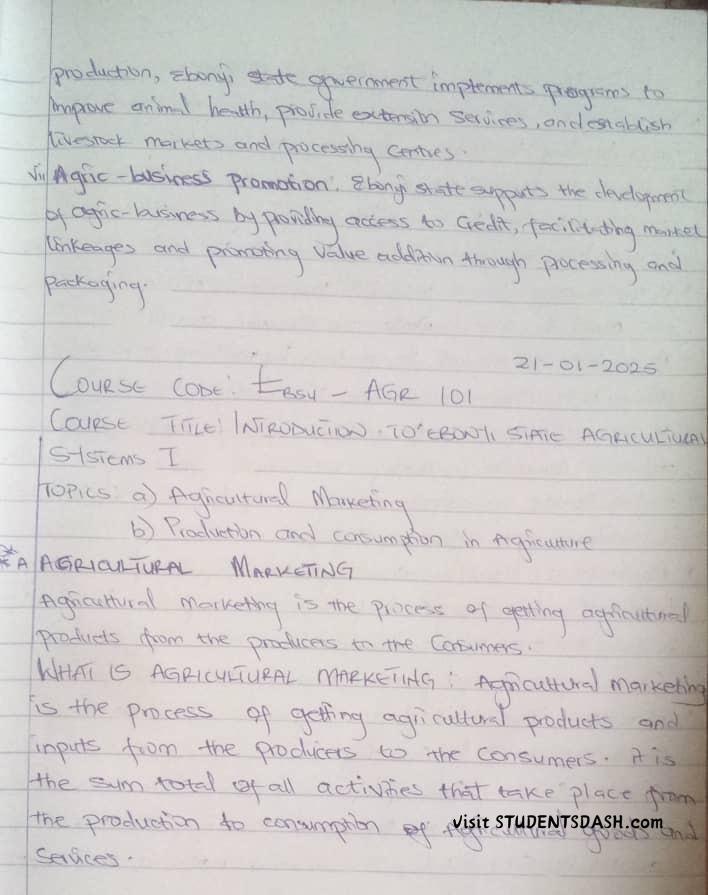 production, Ebonyi state government implements programs to
improve animal health, provide extension services, and establish
livestock markets and processing centres.
vii Agric-business promotion: Ebonyi state supports the development
of agric-business by providing access to credit, facilitating market
linkeages and promoting value addition through processing and
packaging.
21-01-2025
COURSE CODE: EBSU - AGR 101
COURSE TITLE: INTRODUCTION TO EBONYI STATE AGRICULTURAL
SYSTEMS I
TOPICS: a) Agricultural Marketing
b) Production and consumption in Agriculture
A AGRICULTURAL MARKETING
Agricultural marketing is the process of getting agricultural
products from the producers to the consumers.
WHAT IS AGRICULTURAL MARKETING: Agricultural marketing
is the process of getting agricultural products and
inputs from the producers to the consumers. it is
the sum total of all activities that take place from
the production to consumption of Agricultural goods and
services.
visit STUDENTSDASH.com